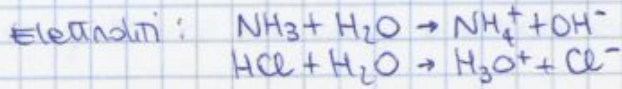 Elettroliti: NH₃ + H₂O → NH₄⁺ + OH⁻
HCl + H₂O → H₃O⁺ + Cl⁻